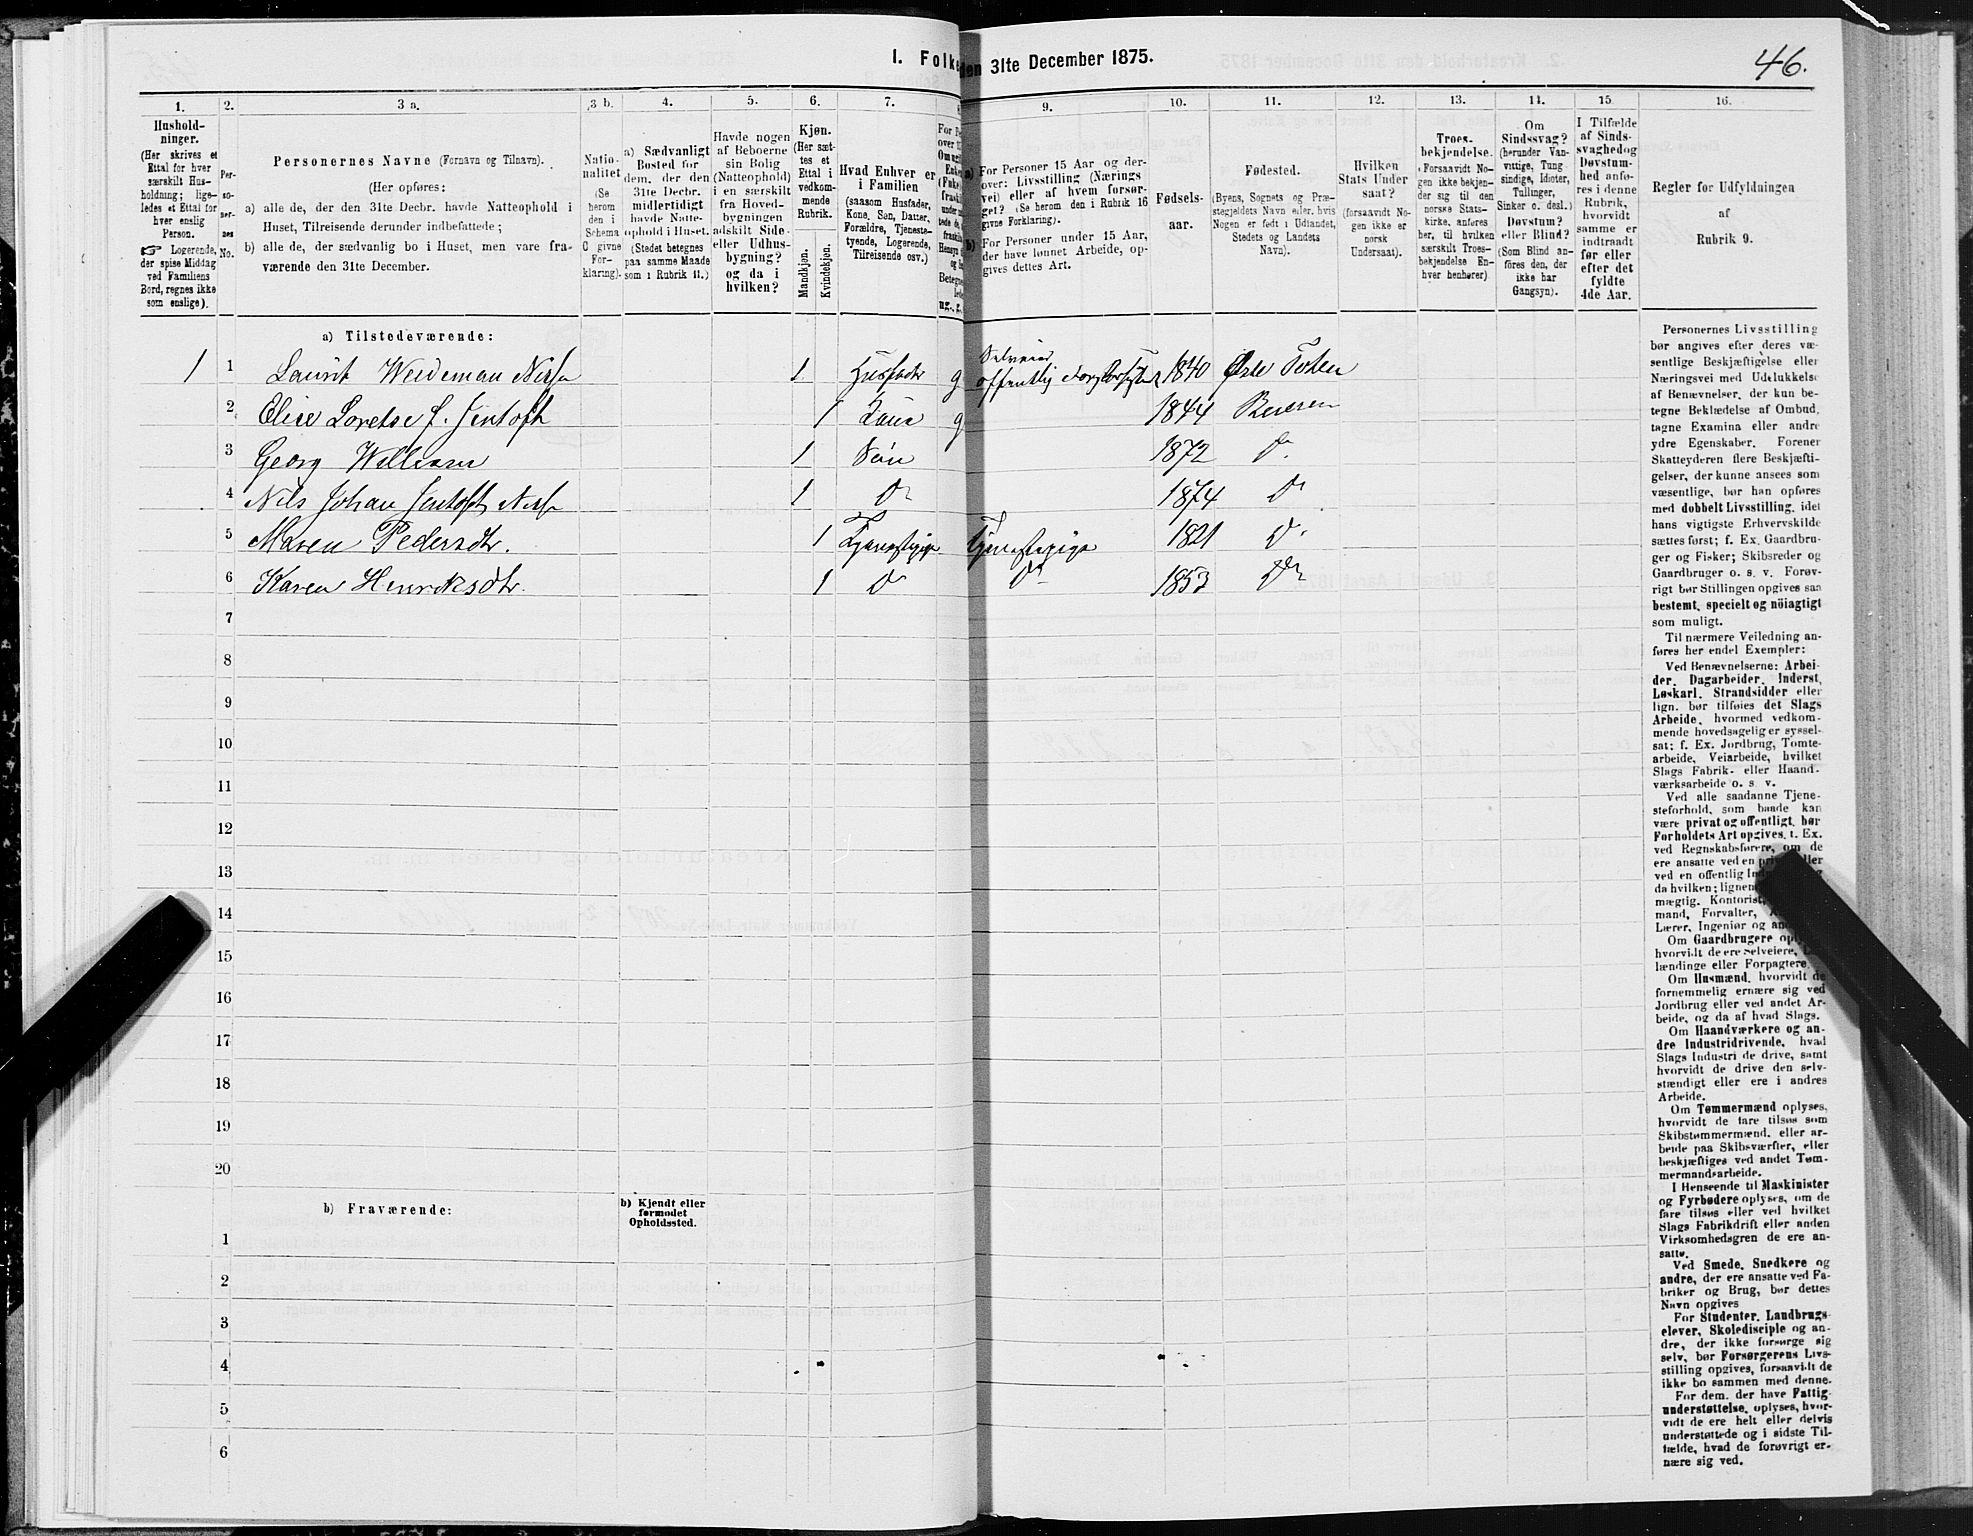 1. Folke
den 31te December 1875.
46.
1.
2.
3 a.
3 b.
4.
5.
6.
7.
8
9.
10.
11.
12.
13.
14.
15
16.
Hushold-
ninger.
(Her skrives et
Ettal for hver
særskilt Hus-
holdning; lige-
ledes et Ettal for
hver enslig
Person.
☞ Logerende,
der spise Middag
ved Familiens
Bord, regnes ikke
som enslige).
Per-
so-
ner-
nes
No.
Personernes Navne (Fornavn og Tilnavn).
(Her opføres:
a) alle de, der den 31te Decbr. havde Natteophold i
Huset, Tilreisende derunder indbefattede;
b) alle de, der sædvanlig bo i Huset, men vare fra-
værende den 31te December.
Natio-
nalitet
(Se
herom
den i
Schema
C givne
For-
klaring).
a) Sædvanligt
Bosted for
dem, der den
31te Decbr.
midlertidigt
havde Natte-
ophold i Huset.
(Stedet betegnes
paa samme Maade
som i Rubrik 11.)
Havde nogen
af Beboerne
sin Bolig
(Natteophold)
i en særskilt
fra Hoved-
bygningen
adskilt Side-
eller Udhus-
bygning?
og da i
hvilken?
Kjøn.
(Her sæt-
tes et
Ettal i
vedkom-
mende
Rubrik.
Mandkjøn.
Kvindekjøn.
Hvad Enhver er
i Familien
(saasom Husfader,
Kone, Søn, Datter,
Forældre, Tjeneste-
tyende, Logerende,
Tilreisende osv.)
a) For Personer 15 Aar og der-
over: Livsstilling (Nærings
vei) eller af hvem forsør-
get? (Se herom den i Rubrik 16
givne Forklaring).
b) For Personer under 15 Aar,
der have lønnet Arbeide, op-
gives dettes Art.
Fødsels-
aar.
Fødested.
(Byens, Sognets og Præ-
stegjeldets Navn eller, hvis
Nogen er født i Udlandet,
Stedets og Landets
Navn).
Hvilken
Stats Under
saat?
(forsaavidt No-
gen ikke er
norsk
Undersaat).
Troes-
bekjendelse.
(Forsaavidt No-
gen ikke bekjen-
der sig til den
norske Stats-
kirke, anføres
her, til hvilken
særskilt Troes-
bekjendelse En-
hver henhører)
Om
Sindssvag?
(herunder Van-
vittige, Tung-
sindige, Idioter,
Tullinger,
Sinker o. desl.)
Døvstum?
eller Blind?
(Som Blind an-
føres den, der
ikke har
Gangsyn).
I Tilfælde
af Sinds-
svaghed og
Døvstum-
hed anfø-
res i denne
Rubrik,
hvorvidt
samme er
indtraadt
før eller
efter det
fyldte
4de Aar.
Regler for Udfyldningen
af
Rubrik 9.
a) Tilstedeværende:
1 1 Laurit Weideman 1 Husfader g Selveier offentlig 1840 Østre Toten
2 Elise 1 Kone g 1844 Beieren
3 Georg William 1 Søn 1872 Do
4 Nils Johan Jentoft 1 Do 1874 Do
5 Maren Pedersdtr. 1 Tjenestepige Tjenestepige 1821 Do
6 Karen Henriksdtr. 1 Do Do 1853 Do
7
8
9
10
11
12
13
14
15
16
17
18
19
20
b) Fraværende:
b) Kjendt eller
formodet
Opholdssted.
1
2
3
4
5
6
Personernes Livsstilling
bør angives efter deres væ-
sentlige Beskjæftigelse eller
Næringsvei med Udelukkelse
af Benævnelser, der kun be-
tegne Beklædelse af Ombud,
tagne Examina eller andre
ydre Egenskaber. Forener
Skatteyderen flere Beskjæfti-
gelser, der kunne ansees som
væsentlige, bør han opføres
med dobbelt Livsstilling, idet
hans vigtigste Erhvervskilde
sættes først; f. Ex. Gaardbru-
ger og Fisker; Skibsreder og
Gaardbruger o. s. v. Forøv-
rigt bør Stillingen opgives saa
bestemt, specielt og nöiagtigt
som muligt.
Til nærmere Veiledning an-
føres her endel Exempler:
Ved Benævnelserne: Arbei-
der, Dagarbeider, Inderst,
Løskarl, Strandsidder eller
lign. bør tilføies det Slags
Arbeide, hvormed vedkom-
mende hovedsagelig er syssel-
sat; f. Ex. Jordbrug, Tomte-
arbeide, Veiarbeide, hvilket
Slags Fabrik- eller Haand-
værksarbeide o. s. v.
Ved alle saadanne Tjene-
steforhold, som baade kan
være privat og offentligt, bør
Forholdets Art opgives, f. Ex.
ved Regnskabsførere, om de
ere ansatte ved en
ved en offentlig
da hvilken;
mægtig, Kontorist,
mand, Forvalter,
Lærer, Ingeniør og
Om Gaardbrugere
hvorvidt de ere Selveiere,
lændinge eller Forpagtere.
Om Husmænd, hvorvidt de
fornemmelig ernære sig ved
Jordbrug eller ved andet Ar-
beide, og da af hvad Slags.
Om Haandværkere og an-
dre Industridrivende, hvad
Slags Industri de drive, samt
hvorvidt de drive den selv-
stændigt eller ere i andres
Arbeide.
Om Tømmermænd oplyses,
hvorvidt de fare tilsøs som
Skibstømmermænd, eller ar-
beide paa Skibsværfter, eller
beskjæftiges ved andet Tøm-
mermandsarbeide.
I Henseende til Maskinister
og Fyrbødere oplyses, om de
fare tilsøs eller ved hvilket
Slags Fabrikdrift eller anden
Virksomhedsgren de ere an-
satte.
Ved Smede, Snedkere og
andre, der ere ansatte ved Fa-
briker og Brug, bør dettes
Navn opgives
For Studenter, Landbrugs-
elever, Skoledisciple og an-
dre, der ikke forsørge sig
selv, bør Forsørgerens Livs-
stilling opgives, forsaavidt de
ikke bo sammen med denne.
For dem, der have Fattig-
understøttelse, oplyses, hvor-
vidt de ere helt eller delvis
understøttede og i sidste Til-
fælde, hvad de forøvrigt er-
nære sig ved.